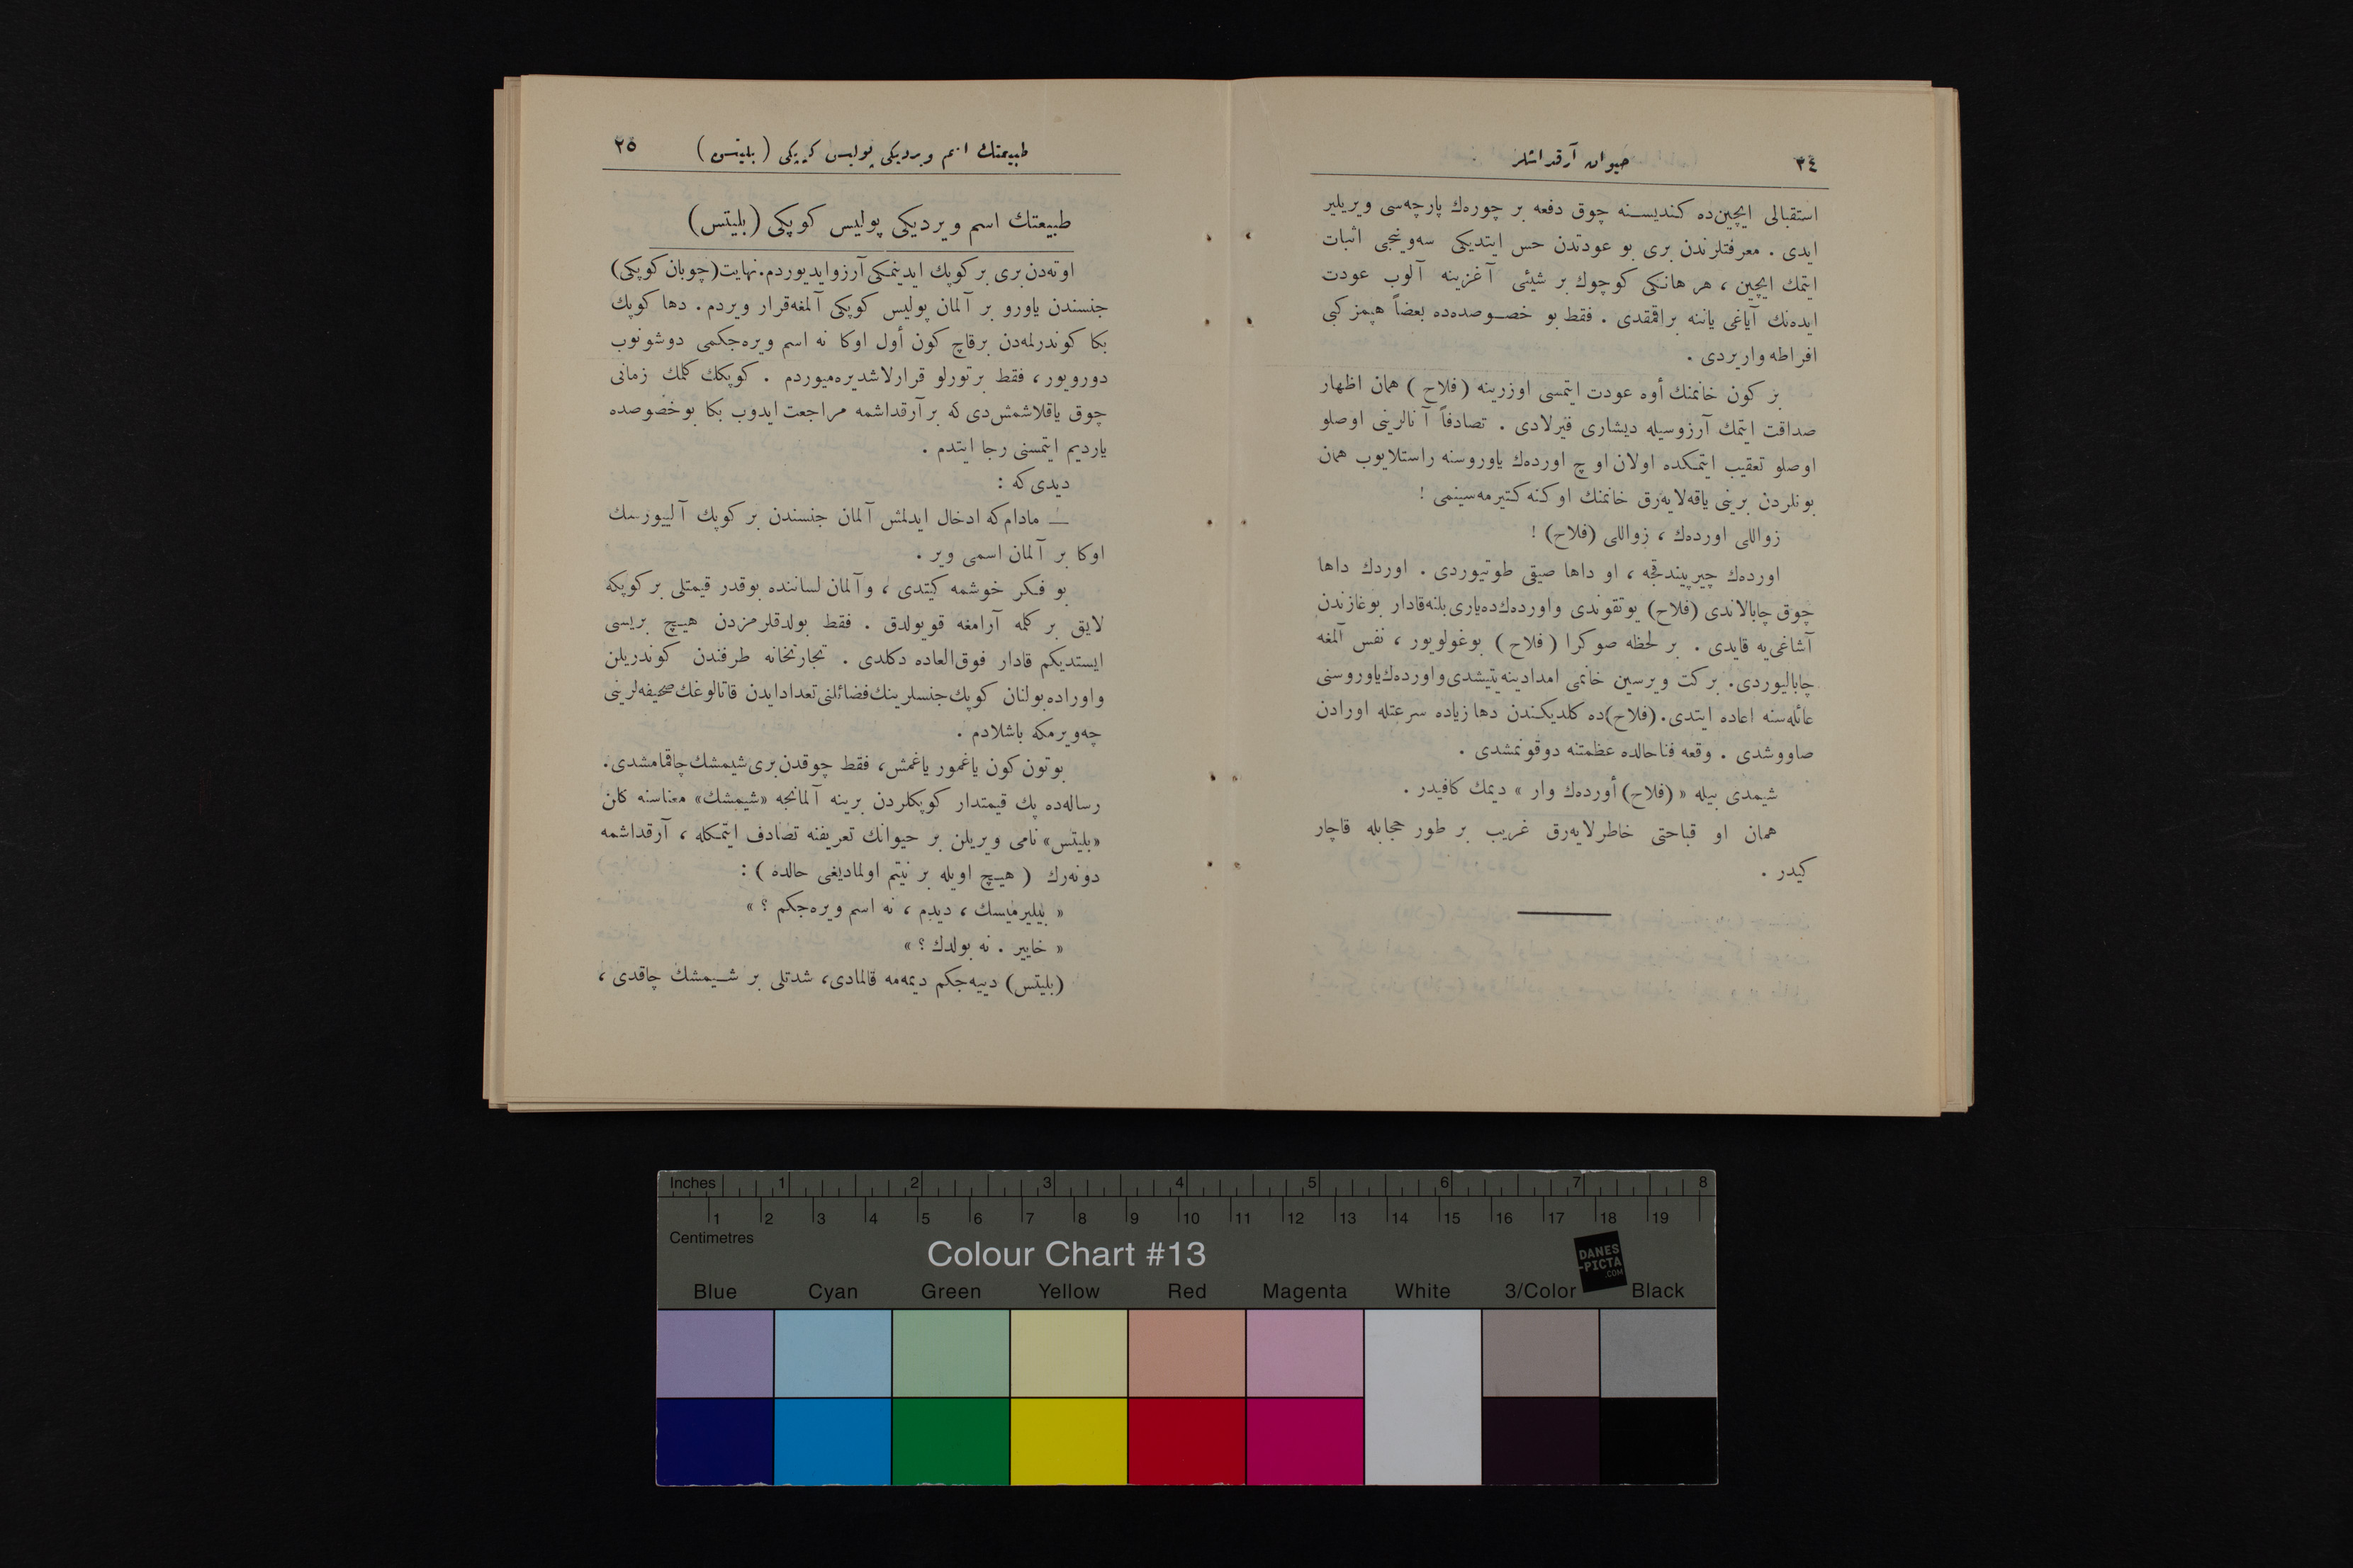 ٣٤
حيوان آرقداشلر
استقبالى ايچين‌ده كنديسنه چوق دفعه بر چوره‌ك پارچه‌سى ويريلير
ايدى . معرفتلرندن برى بو عودتدن حس ايتديكى سه‌وينجى اثبات
ايتمك ايچين ، هر هانكى كوچوك بر شيئى آغزينه آلوب عودت
ايده‌نك آياغى ياننه براقمقدى . فقط بو خصوصده‌ده بعضاً هپمز كبى
افراطه واريردى .
بر كون خانمنك أوه عودت ايتمسى اوزرينه (فلاح) همان اظهار
صداقت ايتمك آرزوسيله ديشارى فيرلادى . تصادفاً آنالرينى اوصلو
اوصلو تعقيب ايتمكده اولان اوچ اورده‌ك ياوروسنه راستلايوب همان
بونلردن برينى ياقه‌لايه‌رق خانمنك اوكنه كتيرمه‌سينمى !
زواللى اورده‌ك ، زواللى (فلاح) !
اورده‌ك چيرپيندقجه ، او داها صيقى طوتيوردى . اوردك داها
چوق چابالاندى (فلاح) يوتقوندى واورده‌ك‌ده يارى بلنه قادار بوغازندن
آشاغى‌يه قايدى . بر لحظه صوكرا (فلاح) بوغولويور ، نفس آلمغه
چاباليوردى. بركت ويرسين خانمى امدادينه يتيشدى واورده‌ك ياوروسنى
عائله‌سنه اعاده ايتدى. (فلاح)ده كلديكندن دها زياده سرعتله اورادن
صاووشدى . وقعه فنا حالده عظمتنه دوقونمشدى .
شيمدى بيله « (فلاح) أورده‌ك وار » ديمك كافيدر .
همان او قباحتى خاطرلايه‌رق غريب بر طور حجابله قاچار
كيدر .
طبيعتك اسم ويرديكى پوليس كوپكى (بليتس)
٢٥
طبيعتك اسم ويرديكى پوليس كوپكى (بليتس)
اوته‌دن برى بر كوپك ايدينمكى آرزو ايديوردم. نهايت (چوبان كوپكى)
جنسندن ياورو بر آلمان پوليس كوپكى آلمغه قرار ويردم . دها كوپك
بكا كوندرلمه‌دن برقاچ كون أول اوكا نه اسم ويره‌جكمى دوشونوب
دورويور ، فقط برتورلو قرارلاشديره‌ميوردم . كوپكك كلمك زمانى
چوق ياقلاشمش‌دى كه بر آرقداشمه مراجعت ايدوب بكا بوخصوصده
يارديم ايتمسنى رجا ايتدم .
ديدى كه :
— مادام‌كه ادخال ايدلمش آلمان جنسندن بر كوپك آلييورسك
اوكا بر آلمان اسمى وير .
بو فكر خوشمه كيتدى ، وآلمان لساننده بوقدر قيمتلى بر كوپكه
لايق بر كلمه آرامغه قويولدق . فقط بولدقلرمزدن هيچ بريسى
ايستديكم قادار فوق‌العاده دكلدى . تجارتخانه طرفندن كوندريلن
واوراده بولنان كوپك جنسلرينك فضائلنى تعداد ايدن قاتالوغك صحيفه‌لرينى
چه‌ويرمكه باشلادم .
بوتون كون ياغمور ياغمش، فقط چوقدن برى شيمشك چاقمامشدى.
رساله‌ده پك قيمتدار كوپكلردن برينه آلمانجه «شيمشك» معناسنه كلن
«بليتس» نامى ويريلن بر حيوانك تعريفنه تصادف ايتمكله ، آرقداشمه
دونه‌رك ( هيچ اويله بر نيتم اولماديغى حالده ) :
« بيليرميسك ، ديدم ، نه اسم ويره‌جكم ؟ »
« خايير . نه بولدك ؟ »
(بليتس) دييه‌جكم ديمه‌مه قالمادى، شدتلى بر شيمشك چاقدى ،
Inches 1 2 3 4 5 6 7 8
1 2 3 4 5 6 7 8 9 10 11 12 13 14 15 16 17 18 19
Centimetres
Colour Chart #13
DANES
-PICTA
.COM
Blue Cyan Green Yellow Red Magenta White 3/Color Black